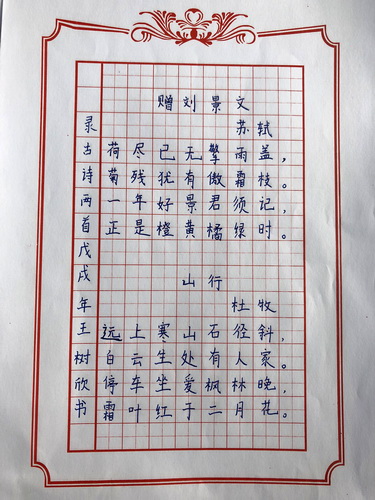 赠刘景文
苏轼
荷尽已无擎雨盖，
菊残犹有傲霜枝。
一年好景君须记，
正是橙黄橘绿时。
山行
杜牧
远上寒山石径斜，
白云生处有人家。
停车坐爱枫林晚，
霜叶红于二月花。
录古诗两首戊戌年王树欣书